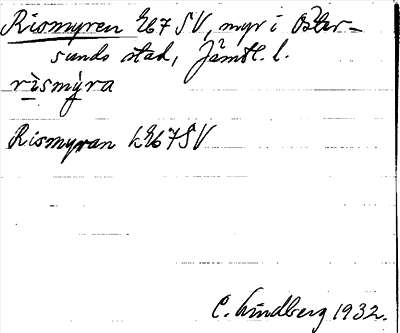 Rismyren Eb7SV, myr i Öster-
sunds stad, Jämtl. l.
rìsmỳra
Rismyran L Eb7SV
C. Lindberg 1932.